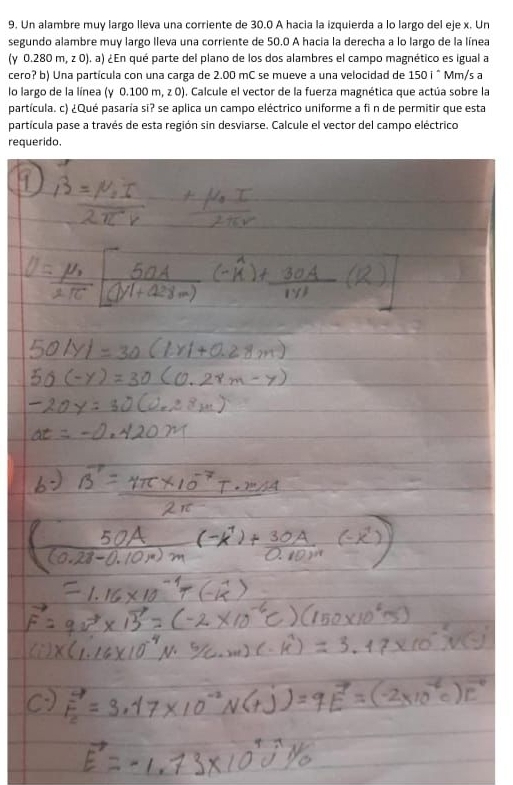 9. Un alambre muy largo lleva una corriente de 30.0 A hacia la izquierda a lo largo del eje x. Un
segundo alambre muy largo lleva una corriente de 50.0 A hacia la derecha a lo largo de la línea
(y 0.280 m, z 0). a) ¿En qué parte del plano de los dos alambres el campo magnético es igual a
cero? b) Una partícula con una carga de 2.00 mC se mueve a una velocidad de 150 i ˆ Mm/s a
lo largo de la línea (y 0.100 m, z 0). Calcule el vector de la fuerza magnética que actúa sobre la
partícula. c) ¿Qué pasaría si? se aplica un campo eléctrico uniforme a fi n de permitir que esta
partícula pase a través de esta región sin desviarse. Calcule el vector del campo eléctrico
requerido.
9) B⃗ = μ₀I / 2πr + μ₀ I / 2πr
0 = μ₀ / 2π [ 50A / (|y|+0.28m) (-k̂) + 30A / |y| (k̂) ]
50|y| = 30 (|y|+0.28m)
50 (-y) = 30 (0.28m - y)
-20y = 30(0.28m)
at = -0.420m
b-) B⃗ = 4π×10⁻⁷ T·m/A / 2π
( 50A / (0.28-0.10m)m (-k̂) + 30A / 0.10m (-k̂) )
= 1.16×10⁻⁴T (-k̂)
F⃗ = qv⃗ × B⃗ = (-2×10⁻⁶C)(150×10⁶ m/s)
(i)×(1.16×10⁻⁴ N·s/C·m)(-k̂) = 3.47×10⁻² N(-j)
C-) F⃗ = 3.47×10⁻² N(+j) = qE⃗ = (-2×10⁻⁶C)E⃗
E⃗ = -1.73×10⁴ ĵ N/C